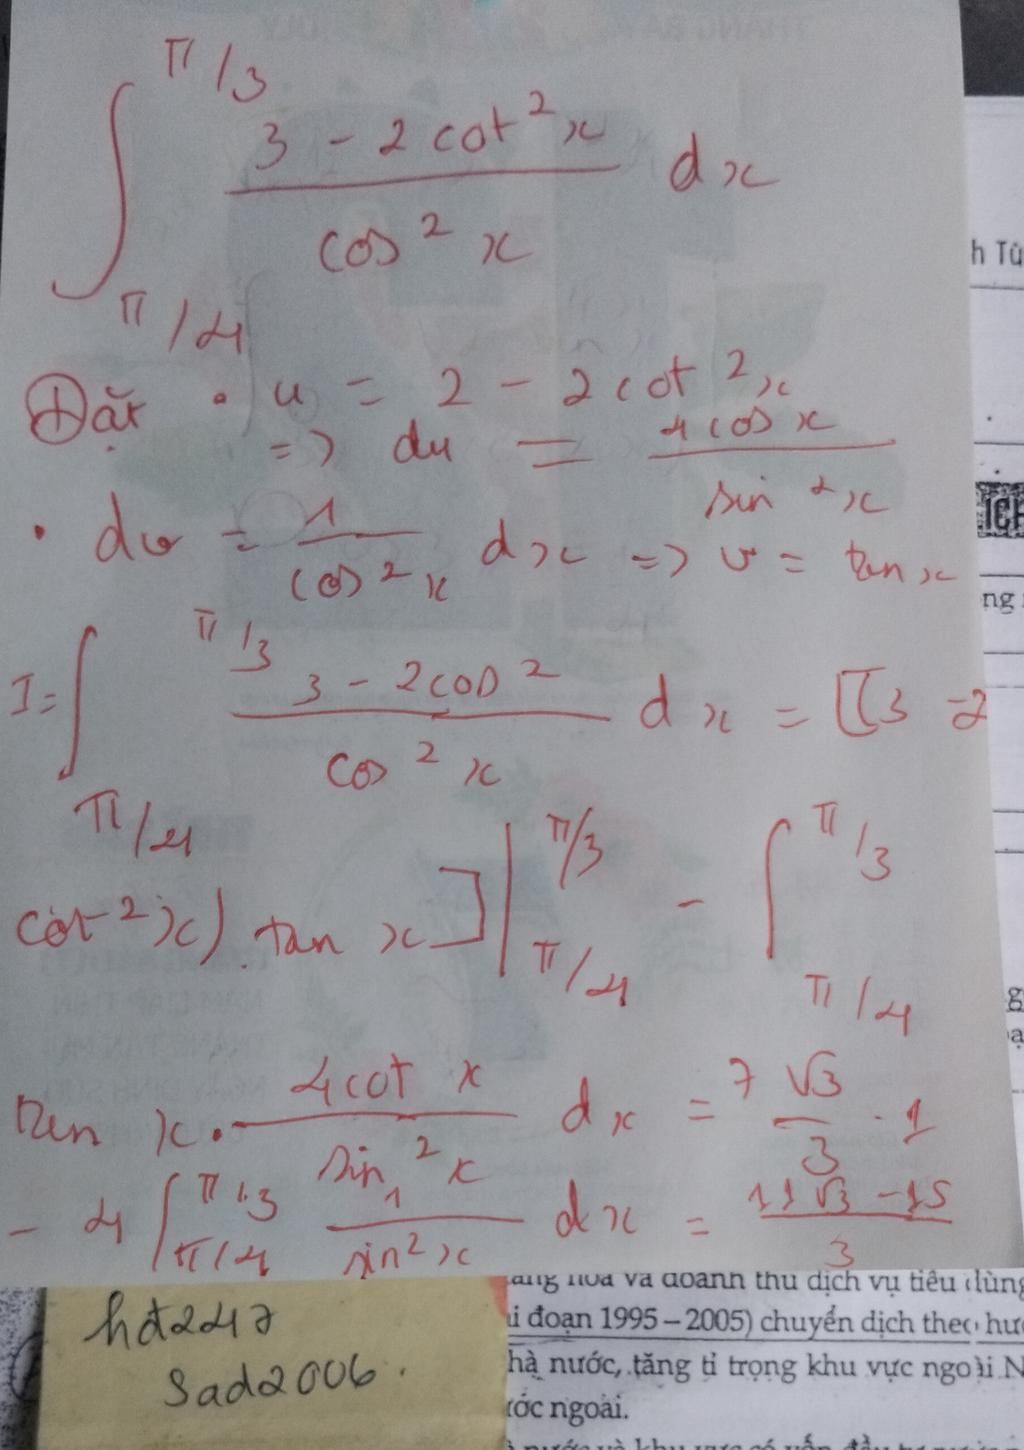 ∫_{π/4}^{π/3} (3 - 2cot²x)/(cos²x) dx
Đặt • u = 2 - 2cot²x
=> du = (4cosx)/(sin²x)
• dv = 1/(cos²x) dx => v = tanx
I = ∫_{π/4}^{π/3} (3 - 2cos²)/(cos²x) dx = [(3 - 2
cot²x).tan x]|_{π/4}^{π/3} - ∫_{π/4}^{π/3}
tan x. (4cot x)/(sin²x) dx = 7 √3/3 - 1
- 4 ∫_{π/4}^{π/3} 1/(sin²x) dx = (11√3 - 15)/3
hđ247
Sad2006.
h Tú
ICH
ng
hàng hóa và doanh thu dịch vụ tiêu dùng
i đoạn 1995 – 2005) chuyển dịch theo hướ
hà nước, tăng tỉ trọng khu vực ngoài N
ước ngoài.